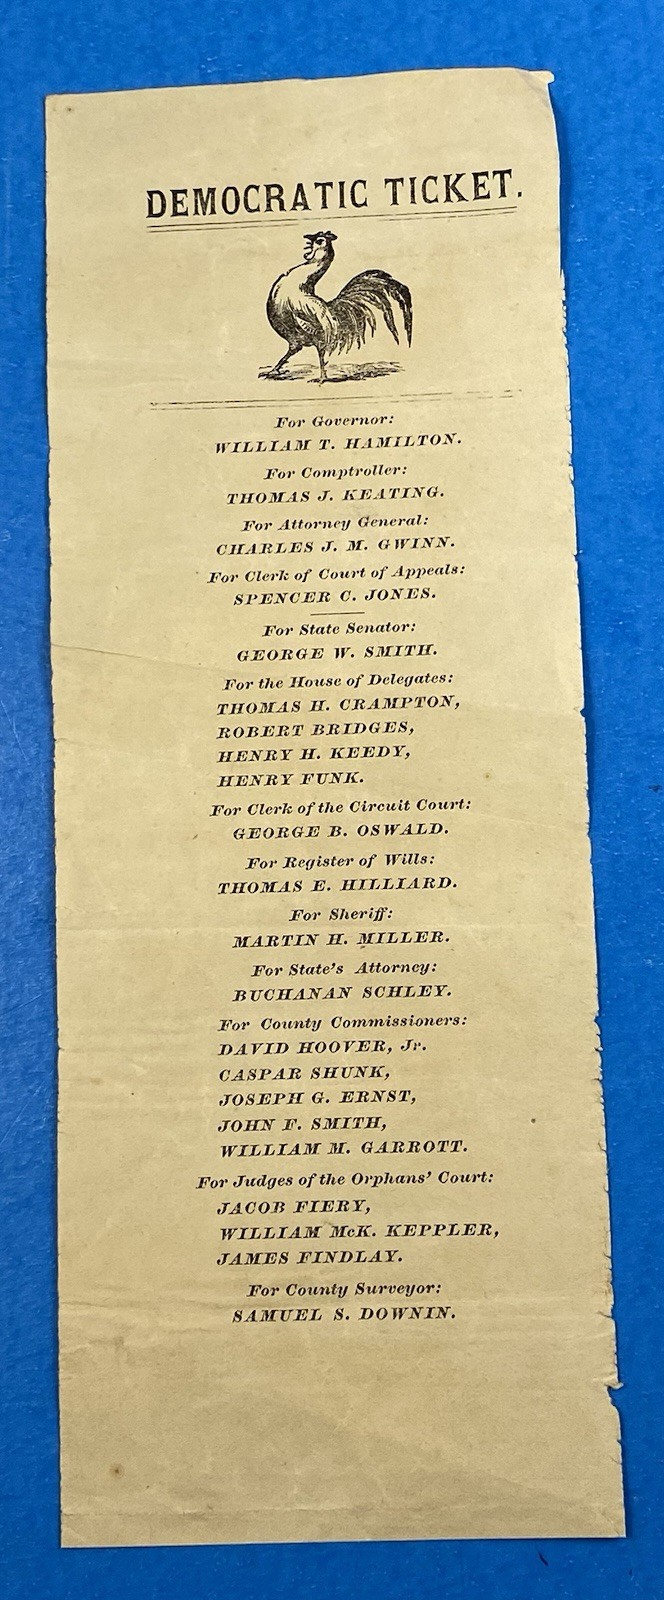 DEMOCRATIC TICKET.
For Governor:
WILLIAM T. HAMILTON.
For Comptroller:
THOMAS J. KEATING.
For Attorney General:
CHARLES J. M. GWINN.
For Clerk of Court of Appeals:
SPENCER C. JONES.
For State Senator:
GEORGE W. SMITH.
For the House of Delegates:
THOMAS H. CRAMPTON,
ROBERT BRIDGES,
HENRY H. KEEDY,
HENRY FUNK.
For Clerk of the Circuit Court:
GEORGE B. OSWALD.
For Register of Wills:
THOMAS E. HILLIARD.
For Sheriff:
MARTIN H. MILLER.
For State's Attorney:
BUCHANAN SCHLEY.
For County Commissioners:
DAVID HOOVER, Jr.
CASPAR SHUNK,
JOSEPH G. ERNST,
JOHN F. SMITH,
WILLIAM M. GARROTT.
For Judges of the Orphans' Court:
JACOB FIERY,
WILLIAM McK. KEPPLER,
JAMES FINDLAY.
For County Surveyor:
SAMUEL S. DOWNIN.